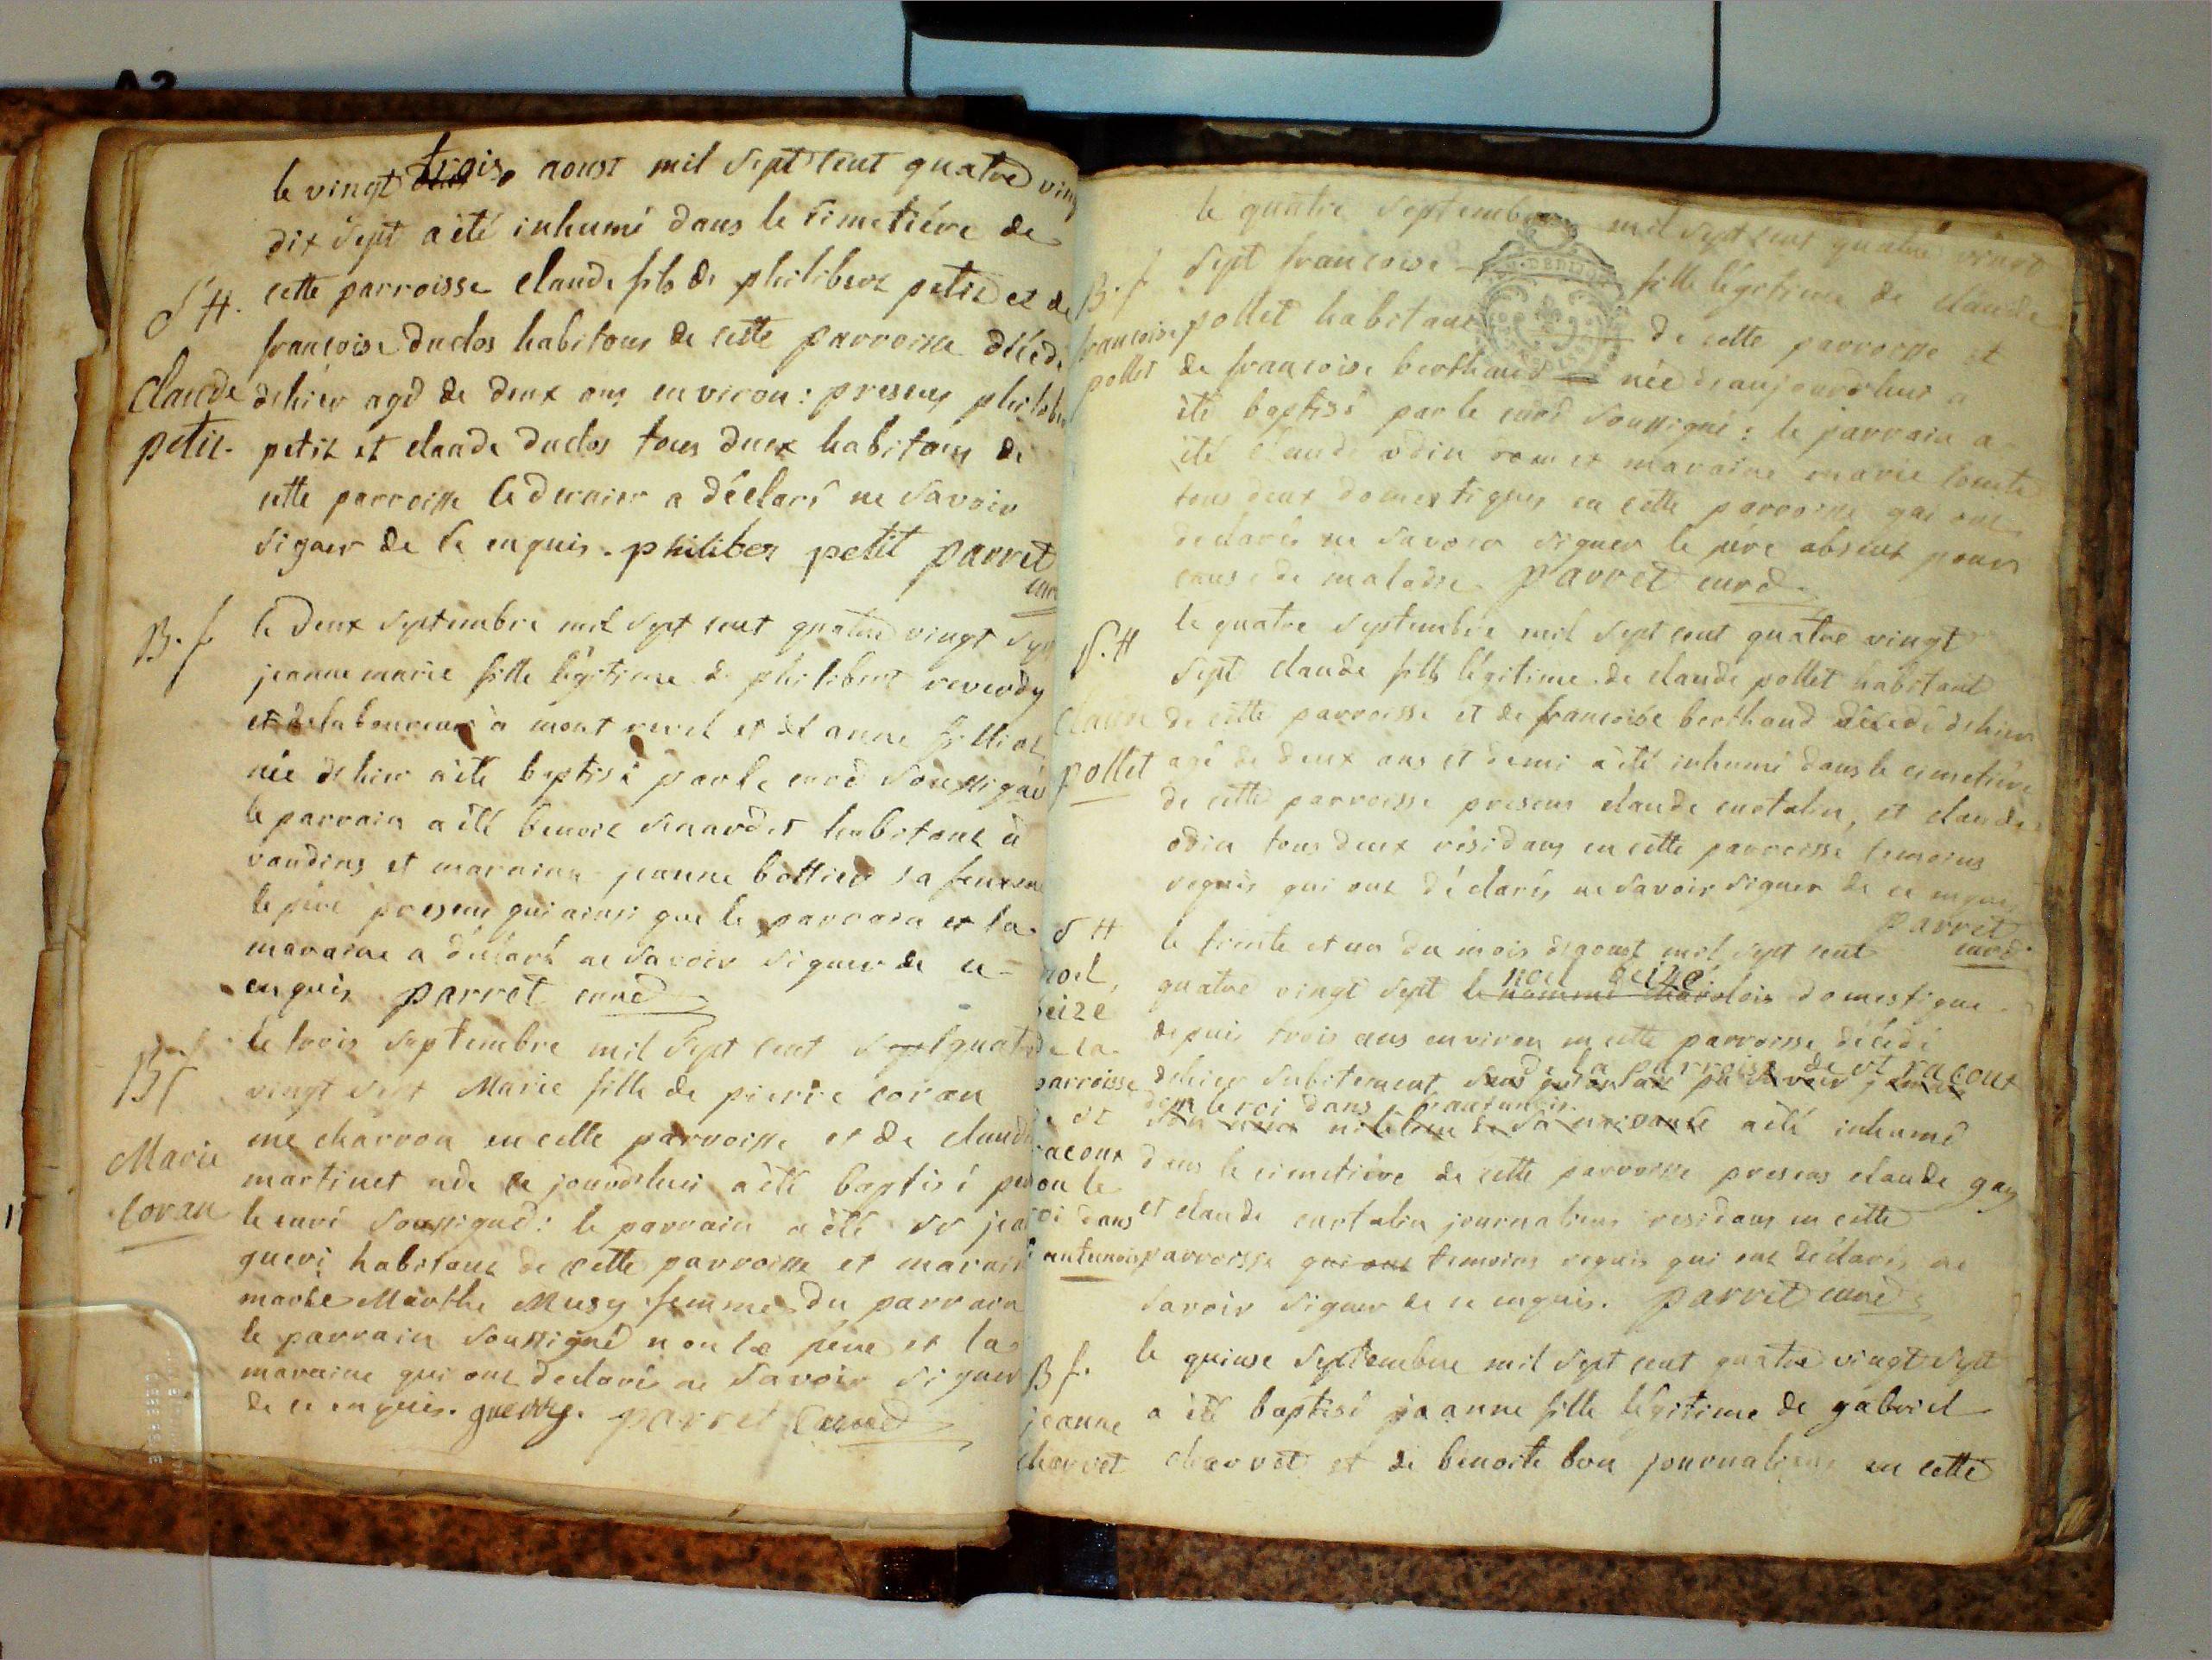 A2
le vingt trois aoust mil sept cent quatre ving
dix sept a été inhumé dans le simetiére de
S H. cette parroisse claude fils de philibert petit et de
francoise duclos habitons de cette parroisse décédé
Claude dehier agé de deux ans environ : presens philibe
petit. petit et claude duclos tous deux habitans de
cette parroisse le dernier a déclaré ne savoir
signer de ce enquis. philiber petit parret
curé
B. f. le deux septembre mil sept cent quatre vingt sept
jeanne marie fille légitime de philibert reverdy
et de laboureur a mont revel et de anne
née dehier a été baptisé par le curé soussigné
le parrain a été benoit habitant à
vandins et maraine jeanne bottier sa femme
le pére present qui ainsi que le parrain et la
maraine a déclaré ne savoir signer de ce
enquis parret curé
Bf le trois septembre mil sept cent sept quatre
vingt sept Marie fille de pierre coran
me charron en cette parroisse et de claud
Marie martinet née ce jourdhui a été baptisé par
Coran le curé soussigné : le parrain a été sr jea
gueri habitant de cette parroisse et marain
marie Marthe Musy femme du parrain
le parrain soussigné non le pere et la
maraine qui ont declaré ne savoir signer
de ce enquis. guerry. parret curé
le quatre septembre mil sept cent quatre vingt
B. f sept francoise fille légitime de claude
francoise pollet habitant de cette parroisse et
pollet de francoise berthaud née de aujourdhui a
été baptisé par le curé soussigné : le parrain a
été claude odin et maraine marie comte
tous deux domestiques en cette parroisse qui ont
declarés ne savoir signer le pére absent pour
cause de maladie. parret curé
le quatre septembre mil sept cent quatre vingt
S. H sept claude fils légitime de claude pollet habitant
Claude de cette parroisse et de francoise berthaud décédé dehier
pollet agé de deux ans et demi a été inhumé dans le cimetiére
de cette parroisse presens claude curtalin, et claude
odin tous deux résidans en cette parroisse temoins
requis qui ont déclarés ne savoir signer de ce enquis
parret
curé
S H le trente et un du mois de aoust mil sept cent
noel beizé
noel, quatre vingt sept le nommé charolois domestique
beizé depuis trois ans environ en cette parroisse décédé
de la parroisse de st racout
de la
parroisse dehier subitement sans
don le roi dans l'autunois
de st a été inhumé
racout dans le cimetiére de cette parroisse presens claude gay
don le
roi dans et claude curtalin journaliers residans en cette
l'autunois parroisse qui ont temoins requis qui ont declarés ne
savoir signer de ce enquis. parret curé
B f. le quinse septembre mil sept cent quatre vingt sept
jeanne a été baptisé jeanne fille légitime de gabriel
charvet charvet et de benoite bon journaliers en cette